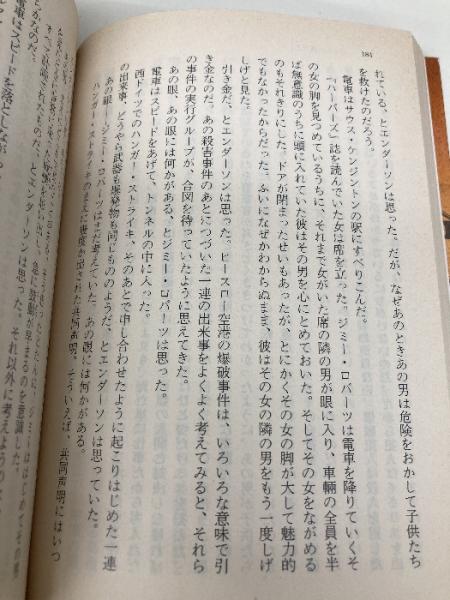 184
れている、とエンダーソンは思った。だが、なぜあのときあの男は危険をおかして子供たち
を救けたのだろう。
電車はサウス・ケンジントンの駅にすべりこんだ。
『ハーパーズ』誌を読んでいた女は席を立った。ジミー・ロバーツは電車を降りていくそ
の女の脚を見つめているうちに、それまで女がいた席の隣の男が眼に入り、車輛の全員を半
ば無意識のうちに頭に入れていた彼はその男を心にとめておいた。そしてその女をながめる
のもそれきりにした。ドアが閉まったせいもあったが、とにかくその女の脚が大して魅力的
でもなかったからだった。ふいになぜかわからぬまま、彼はその女の隣の男をもう一度しげ
しげと見た。
引き金だ、とエンダーソンは思った。ヒースロー空港の爆破事件は、いろいろな意味で引
き金なのだ。あの殺害事件のあとにつづいた一連の出来事をよくよく考えてみると、それら
の事件の実行グループが、合図を待っていたように思えてきた。
あの眼、あの眼には何かがある、とジミー・ロバーツは思った。
電車はスピードをあげて、トンネルの中に入った。
西ドイツでのハンガー・ストライキ、そのあとで申し合わせたように起こりはじめた一連
の出来事、どうやら武器も爆発物も同じもののようだ、とエンダーソンは思っていた。
あの眼――ジミー・ロバーツはまだ考えていた。あの眼には何かがある。
ハンガー・ストライキのまえに世度か出された共同声明。そういえば、共同声明にはいつ